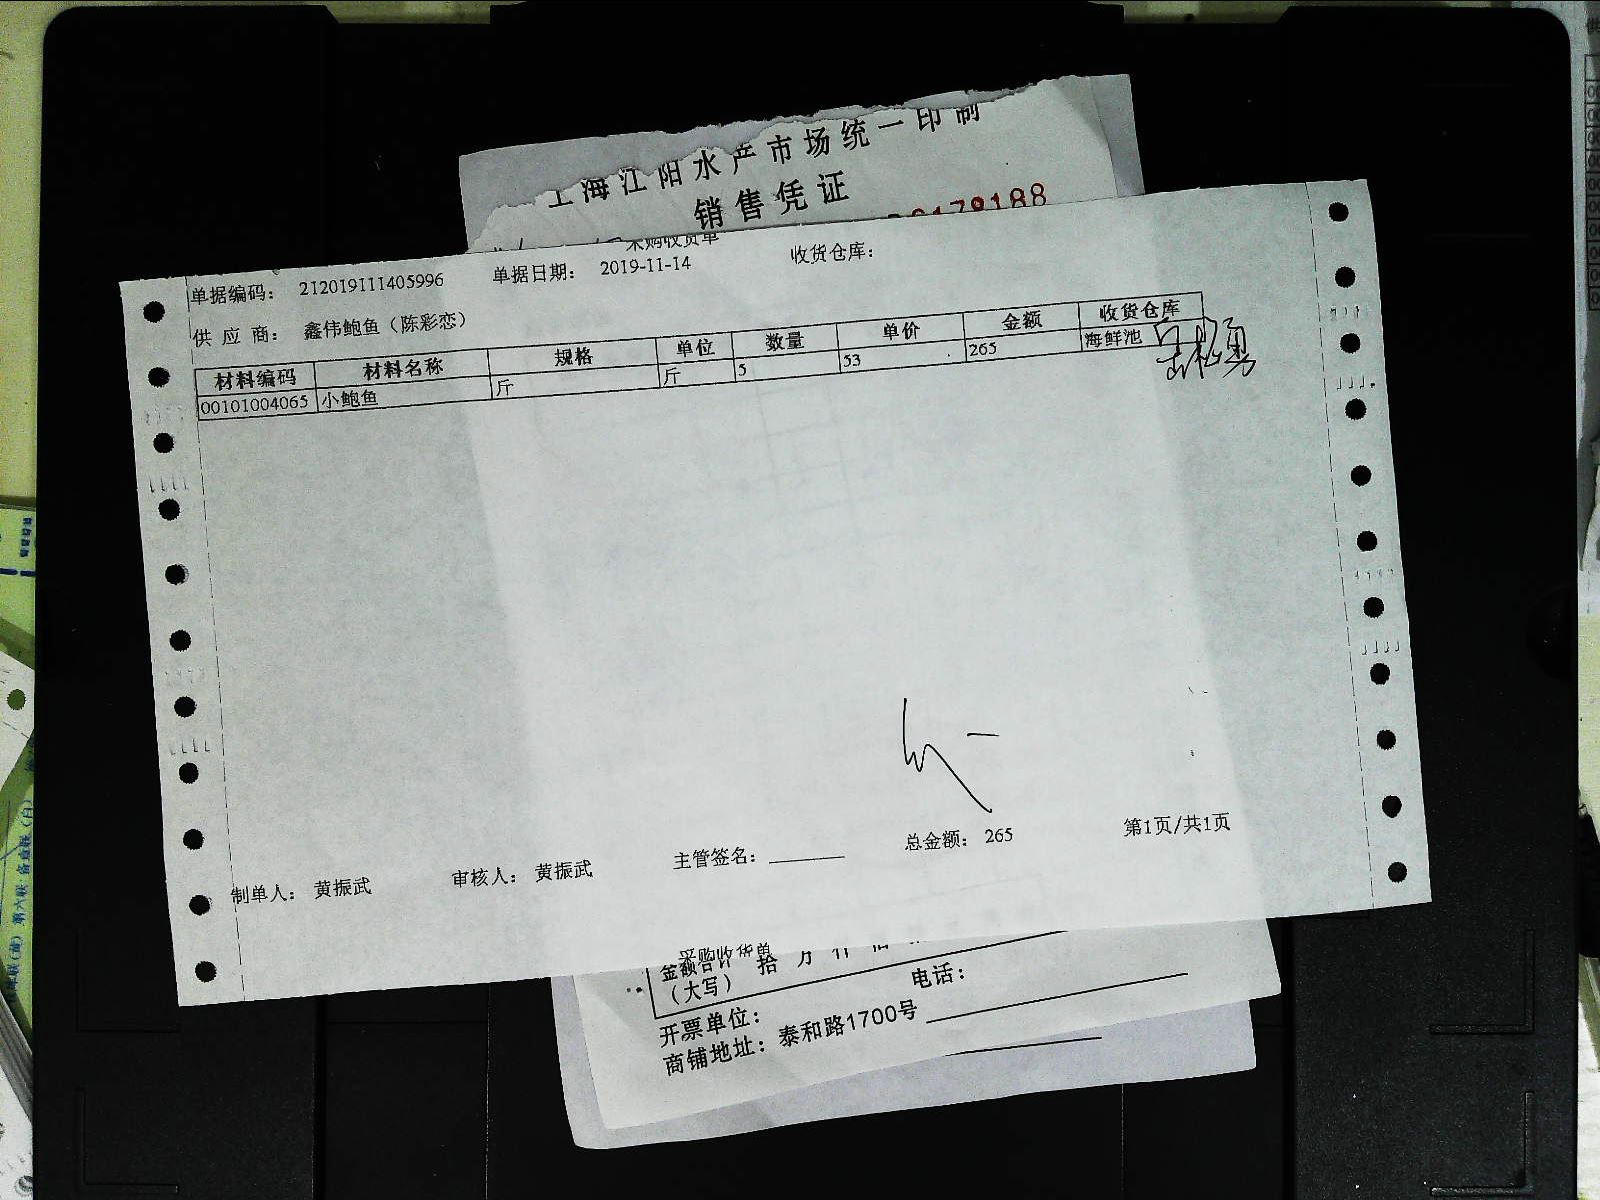 上海江阳水产市场统一印制
销售凭证
178188
采购收货单
单据编码： 212019111405996 单据日期： 2019-11-14 收货仓库：
供 应 商： 鑫伟鲍鱼（陈彩恋）
材料编码 材料名称 规格 单位 数量 单价 金额 收货仓库
00101004065 小鲍鱼 斤 斤 5 53 265 海鲜池
制单人： 黄振武 审核人： 黄振武 主管签名： 总金额： 265 第1页/共1页
采购收货单
金额合计 拾 万 仟 佰
（大写）
开票单位： 电话：
商铺地址：泰和路1700号